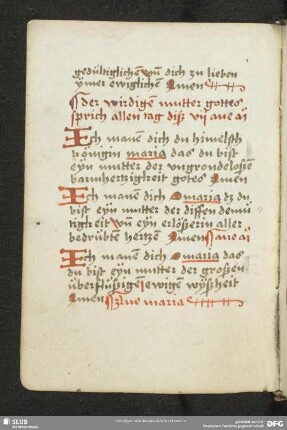 gedültiglichen vn̄ dich zu lieben
ymer ewiglichen Amen
der wirdigē mutter gottes
sprich allen tag diß vij aue ā
Ich manē dich du himelsch
königin maria das du bist
eyn mutter der vngrondelosen
barmhertzigkeit gotes Amen
Ich manē dich O maria dz du
bist eyn mutter der diffen demü
tigkeit vn̄ eyn erlößerin aller
bedrübte hertzen Amen aue ā
Ich manē dich O maria das
du bist eyn mutter der großen
überflüßigen ewigen wyßheit
Amen Aue maria
SLUB
DFG